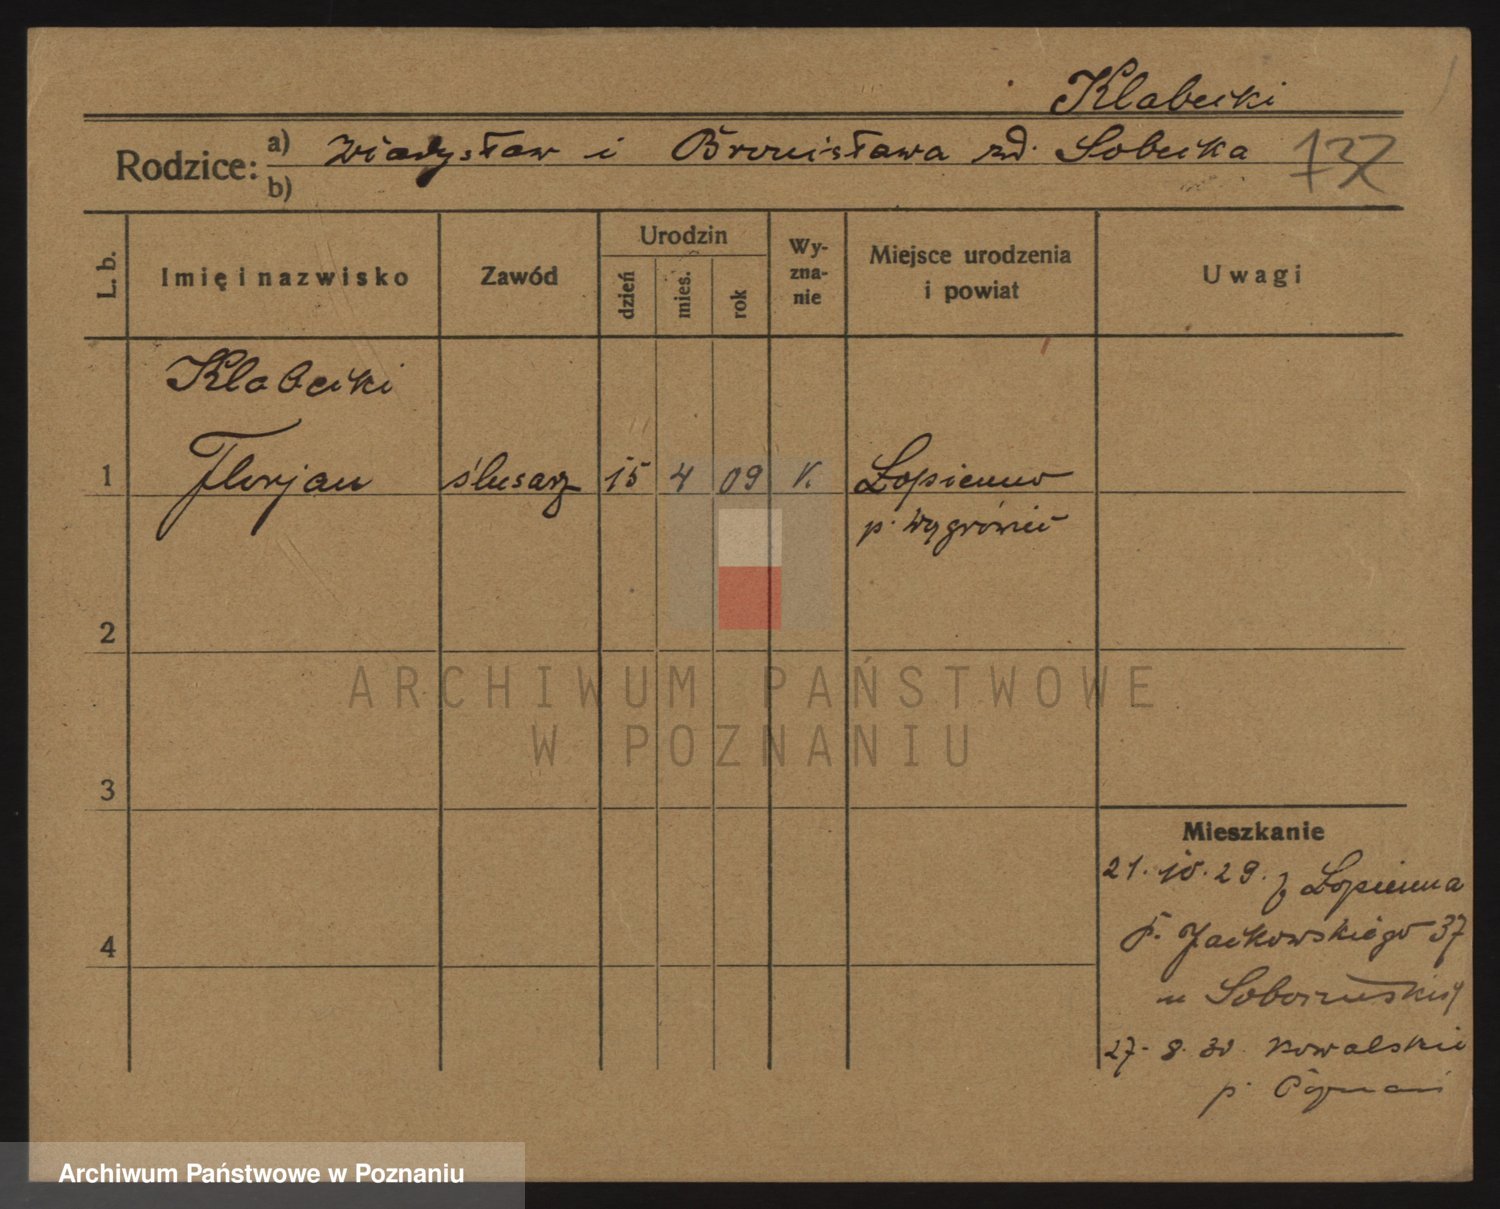 Klabecki
Rodzice:
a) Władysław i Bronisława zd. Sobecka
b)
732
L. b.
Imię i nazwisko
Zawód
Urodzin
dzień
mies.
rok
Wy-
zna-
nie
Miejsce urodzenia
i powiat
Uwagi
Klabecki
1 Florjan ślusarz 15 4 09 K. Łopienno
p. Wągrówiec
2
ARCHIWUM PAŃSTWOWE
W POZNANIU
3
Mieszkanie
21. 10. 29. z Łopienna
Jackowskiego 37
4
u
27. 8. 30 Kowalskie
p. Poznań
Archiwum Państwowe w Poznaniu